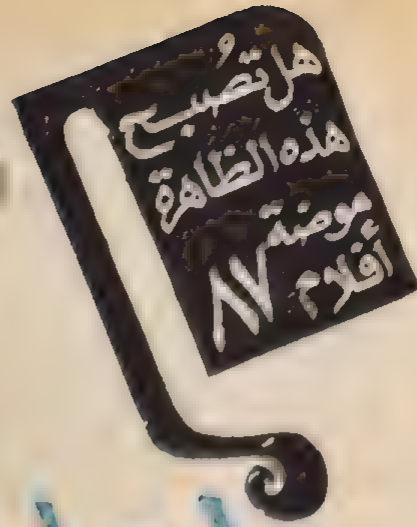 هل تصبح
هذه الظاهرة
موضة
أفلام ٨٧